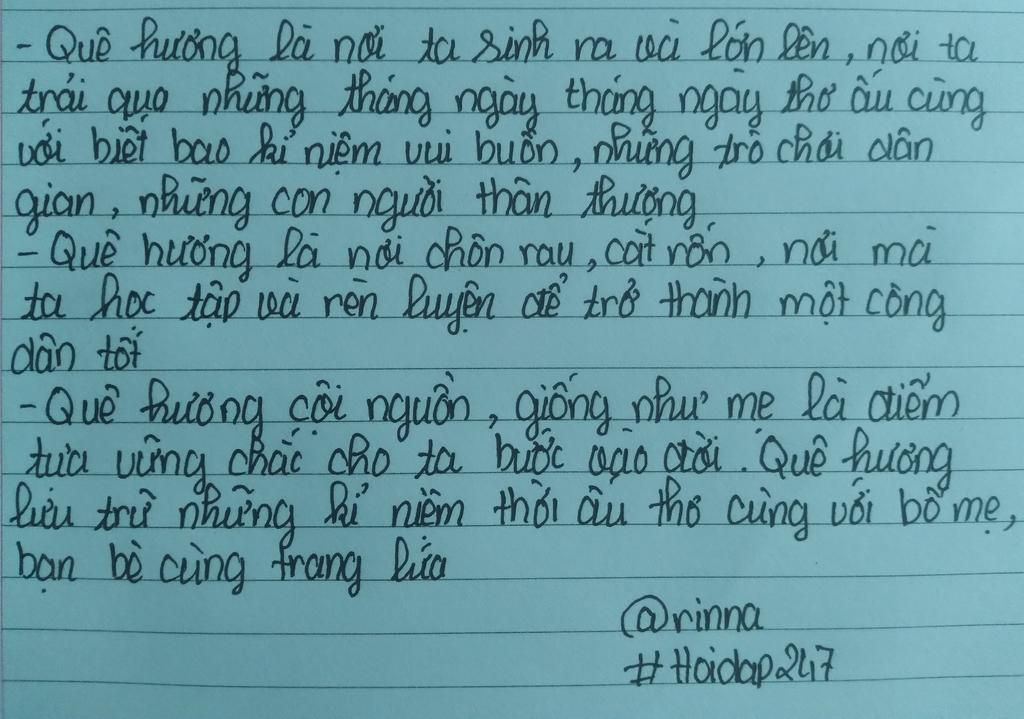 - Quê hương là nơi ta sinh ra và lớn lên, nơi ta
trải qua những tháng ngày tháng ngày thơ ấu cùng
với biết bao kỉ niệm vui buồn, những trò chơi dân
gian, những con người thân thương
- Quê hương là nơi chôn rau, cắt rốn, nơi mà
ta học tập và rèn luyện để trở thành một công
dân tốt
- Quê hương cội nguồn, giống như mẹ là điểm
tựa vững chắc cho ta bước vào đời. Quê hương
lưu trữ những kỉ niệm thời ấu thơ cùng với bố mẹ,
bạn bè cùng trang lứa
@rinna
#Hoidap247